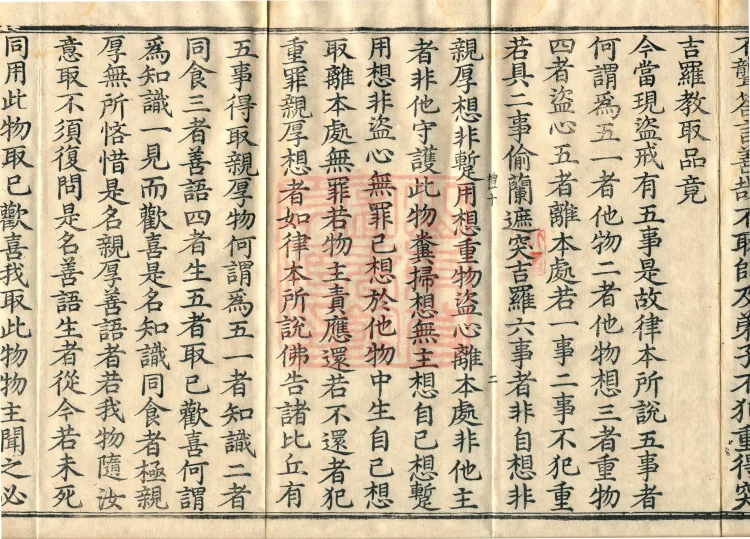 不聾答言善哉不取師及弟子不犯重得突
吉羅教取品竟
今當現盜戒有五事是故律本所說五事者
何謂爲五一者他物二者他物想三者重物
四者盜心五者離本處若一事二事不犯重
若具二事偷蘭遮突吉羅六事者非自想非
禮十 二
親厚想非蹔用想重物盜心離本處非他主
者非他守護此物糞掃想無主想自己想蹔
用想非盜心無罪己想於他物中生自己想
取離本處無罪若物主責應還若不還者犯
重罪親厚想者如律本所說佛告諸比丘有
五事得取親厚物何謂爲五一者知識二者
同食三者善語四者生五者取已歡喜何謂
爲知識一見而歡喜是名知識同食者極親
厚無所悋惜是名親厚善語者若我物隨汝
意取不須復問是名善語生者從今若未死
同用此物取已歡喜我取此物物主聞之必